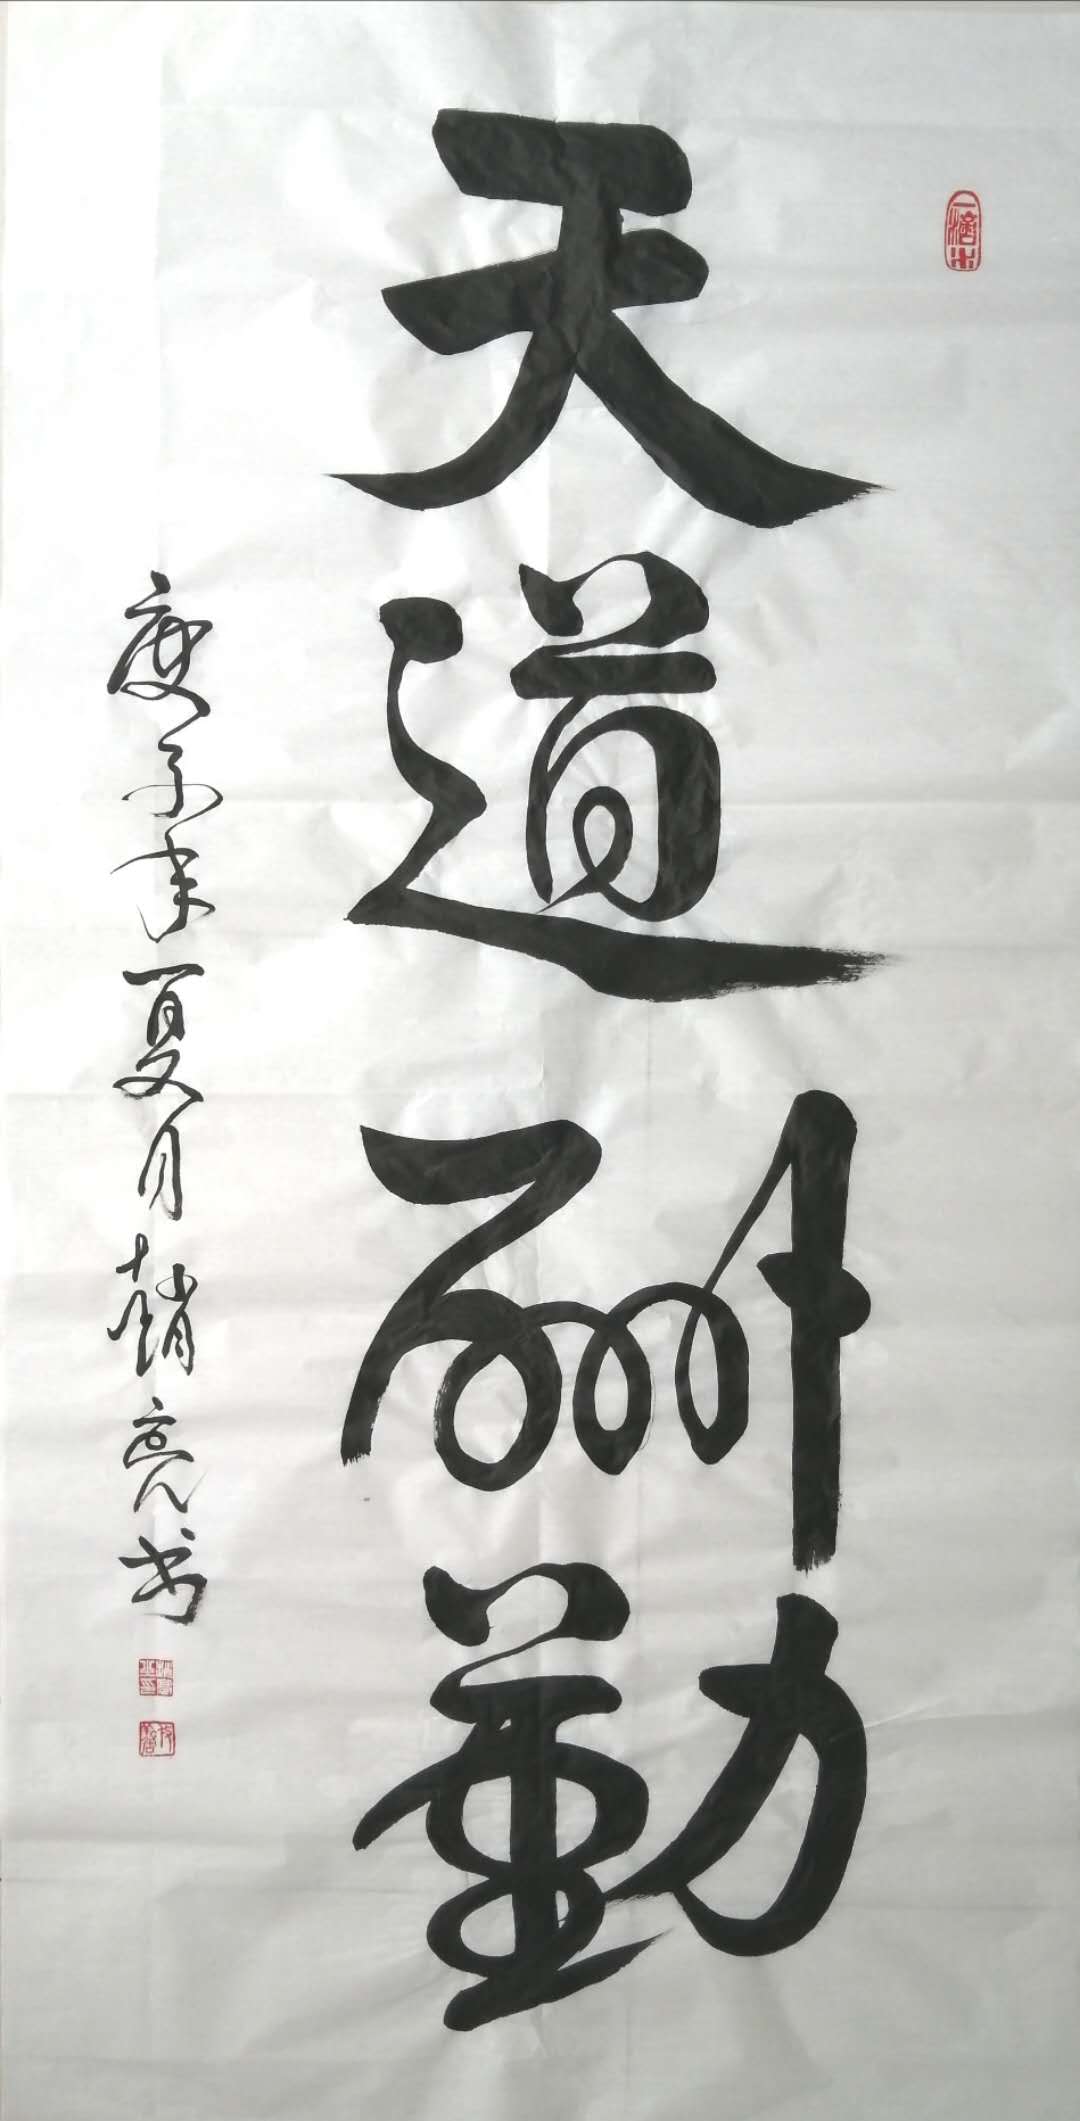 天道酬勤
庚子年夏月赵亮书